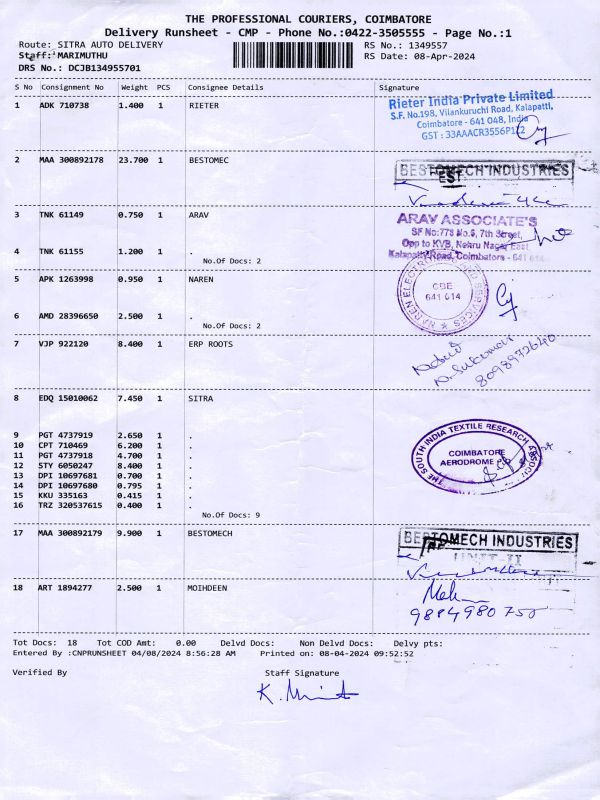 THE PROFESSIONAL COURIERS, COIMBATORE
Delivery Runsheet - CMP - Phone No.:0422-3505555 - Page No.:1
Route: SITRA AUTO DELIVERY RS No.: 1349557
Staff: MARIMUTHU RS Date: 08-Apr-2024
DRS No.: DCJB134955701
S No Consignment No Weight PCS Consignee Details Signature
1 ADK 710738 1.400 1 RIETER
Rieter India Private Limited
S.F. No.198, Vilankuruchi Road, Kalapatti,
Coimbatore - 641 048, India
GST : 33AAACR3556P1Z2
2 MAA 300892178 23.700 1 BESTOMEC
BESTOMECH INDUSTRIES
EST.
3 TNK 61149 0.750 1 ARAV
ARAV ASSOCIATE'S
SF No:778 No.9, 7th Street,
Opp to KVB, Nehru Nagar East,
Kalapatti Road, Coimbatore - 641 014
4 TNK 61155 1.200 1 .
No.Of Docs: 2
5 APK 1263998 0.950 1 NAREN
CBE
641 014
6 AMD 28396650 2.500 1 .
No.Of Docs: 2
7 VJP 922120 8.400 1 ERP ROOTS
8098972640
8 EDQ 15010062 7.450 1 SITRA
THE SOUTH INDIA TEXTILE RESEARCH ASSOCI
COIMBATORE
AERODROME P.O
9 PGT 4737919 2.650 1 .
10 CPT 710469 6.200 1 .
11 PGT 4737918 4.700 1 .
12 STY 6050247 8.400 1 .
13 DPI 10697681 0.700 1 .
14 DPI 10697680 0.795 1 .
15 KKU 335163 0.415 1 .
16 TRZ 320537615 0.400 1 .
No.Of Docs: 9
17 MAA 300892179 9.900 1 BESTOMECH
BESTOMECH INDUSTRIES
UNIT-II
18 ART 1894277 2.500 1 MOIHDEEN
9884980750
Tot Docs: 18 Tot COD Amt: 0.00 Delvd Docs: Non Delvd Docs: Delvy pts:
Entered By :CNPRUNSHEET 04/08/2024 8:56:28 AM Printed on: 08-04-2024 09:52:52
Verified By Staff Signature